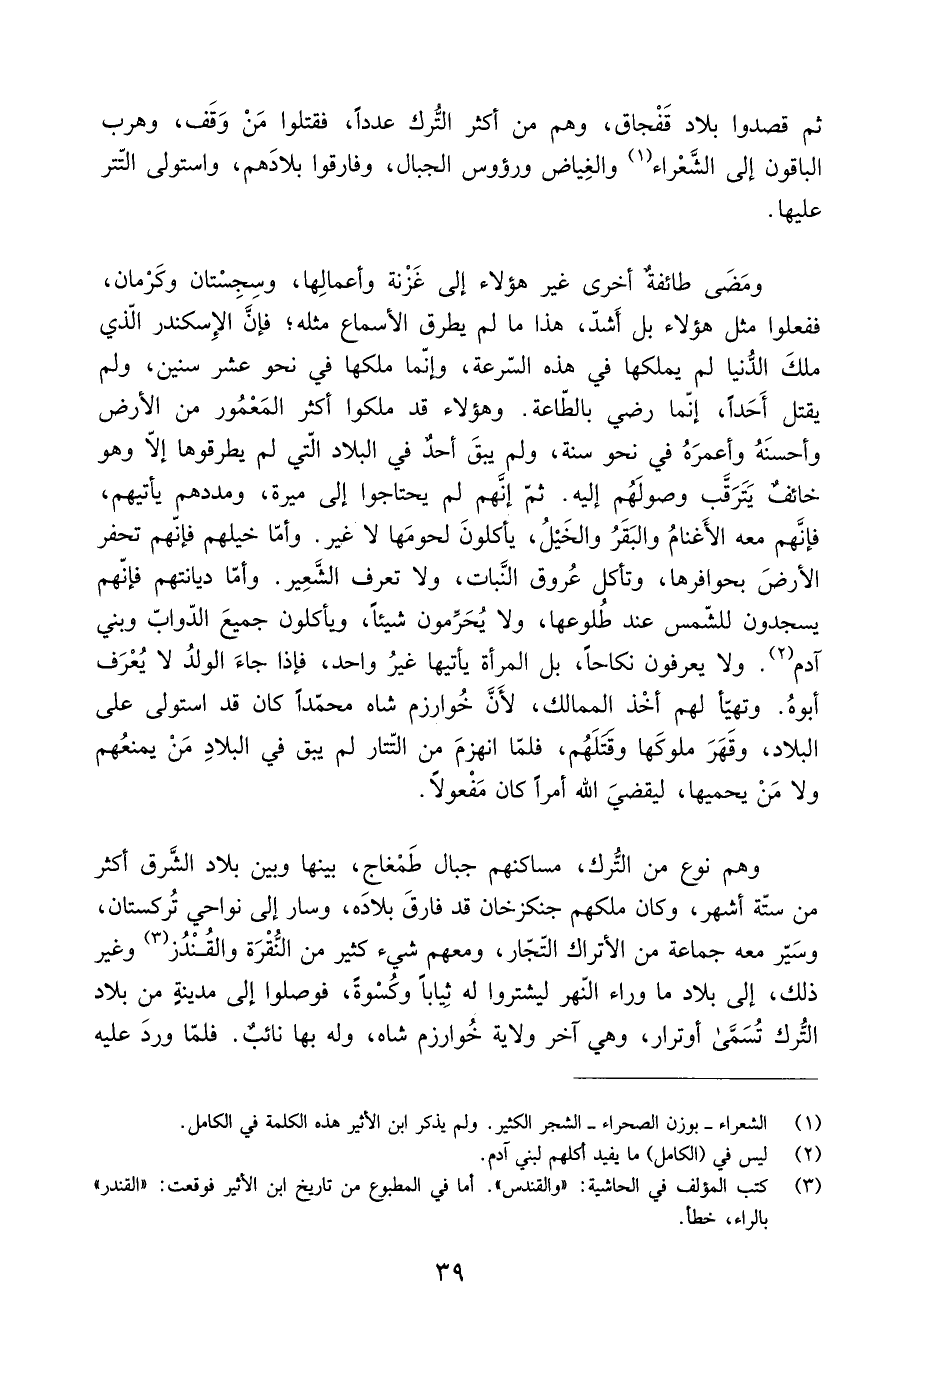 ثم قصدوا بلاد قَفْجاق، وهم من أكثر التُّرك عدداً، فقتلوا مَنْ وَقَف، وهرب
الباقون إلى الشَّعْراء(١) والغِياض ورؤوس الجبال، وفارقوا بلادَهم، واستولى التّتر
عليها.
ومَضَى طائفةٌ أخرى غير هؤلاء إلى غَزْنة وأعمالِها، وسِجِسْتان وكَرْمان،
ففعلوا مثل هؤلاء بل أَشدّ، هذا ما لم يطرق الأسماع مثله؛ فإنَّ الإسكندر الّذي
ملكَ الدُّنيا لم يملكها في هذه السّرعة، وإنّما ملكها في نحو عشر سنين، ولم
يقتل أَحَداً، إنّما رضي بالطّاعة. وهؤلاء قد ملكوا أكثر المَعْمُور من الأرض
وأحسنَهُ وأعمرَهُ في نحو سنة، ولم يبقَ أحدٌ في البلاد الّتي لم يطرقوها إلاّ وهو
خائفٌ يَتَرَقَّب وصولَهُم إليه. ثمّ إنَّهم لم يحتاجوا إلى ميرة، ومددهم يأتيهم،
فإنَّهم معه الأَغنامُ والبَقَرُ والخَيْلُ، يأكلونَ لحومَها لا غير. وأمّا خيلهم فإنّهم تحفر
الأرضَ بحوافرها، وتأكل عُروق النَّبات، ولا تعرف الشَّعِير. وأمّا ديانتهم فإنّهم
يسجدون للشّمس عند طُلوعها، ولا يُحَرِّمون شيئاً، ويأكلون جميعَ الدّوابّ وبني
آدم(٢). ولا يعرفون نكاحاً، بل المرأة يأتيها غيرُ واحد، فإذا جاءَ الولدُ لا يُعْرَف
أبوهُ. وتهيّأ لهم أخْذ الممالك، لأَنَّ خُوارزم شاه محمّداً كان قد استولى على
البلاد، وقَهَرَ ملوكَها وقَتَلَهُم، فلمّا انهزمَ من التّتار لم يبق في البلادِ مَنْ يمنعُهم
ولا مَنْ يحميها، ليقضيَ الله أمراً كان مَفْعولاً.
وهم نوع من التُّرك، مساكنهم جبال طَمْغاج، بينها وبين بلاد الشَّرق أكثر
من ستّة أشهر، وكان ملكهم جنكزخان قد فارقَ بلادَه، وسار إلى نواحي تُركستان،
وسَيّر معه جماعة من الأتراك التّجّار، ومعهم شيء كثير من النُّقْرَة والقُنْدُز(٣) وغير
ذلك، إلى بلاد ما وراء النّهر ليشتروا له ثِياباً وكُسْوةً، فوصلوا إلى مدينةٍ من بلاد
التُّرك تُسَمَّىٰ أوترار، وهي آخر ولاية خُوارزم شاه، وله بها نائبٌ. فلمّا وردَ عليه
(١) الشعراء ـ بوزن الصحراء ـ الشجر الكثير. ولم يذكر ابن الأثير هذه الكلمة في الكامل.
(٢) ليس في (الكامل) ما يفيد أكلهم لبني آدم.
(٣) كتب المؤلف في الحاشية: «والقندس». أما في المطبوع من تاريخ ابن الأثير فوقعت: «القندر»
بالراء، خطأ.
٣٩